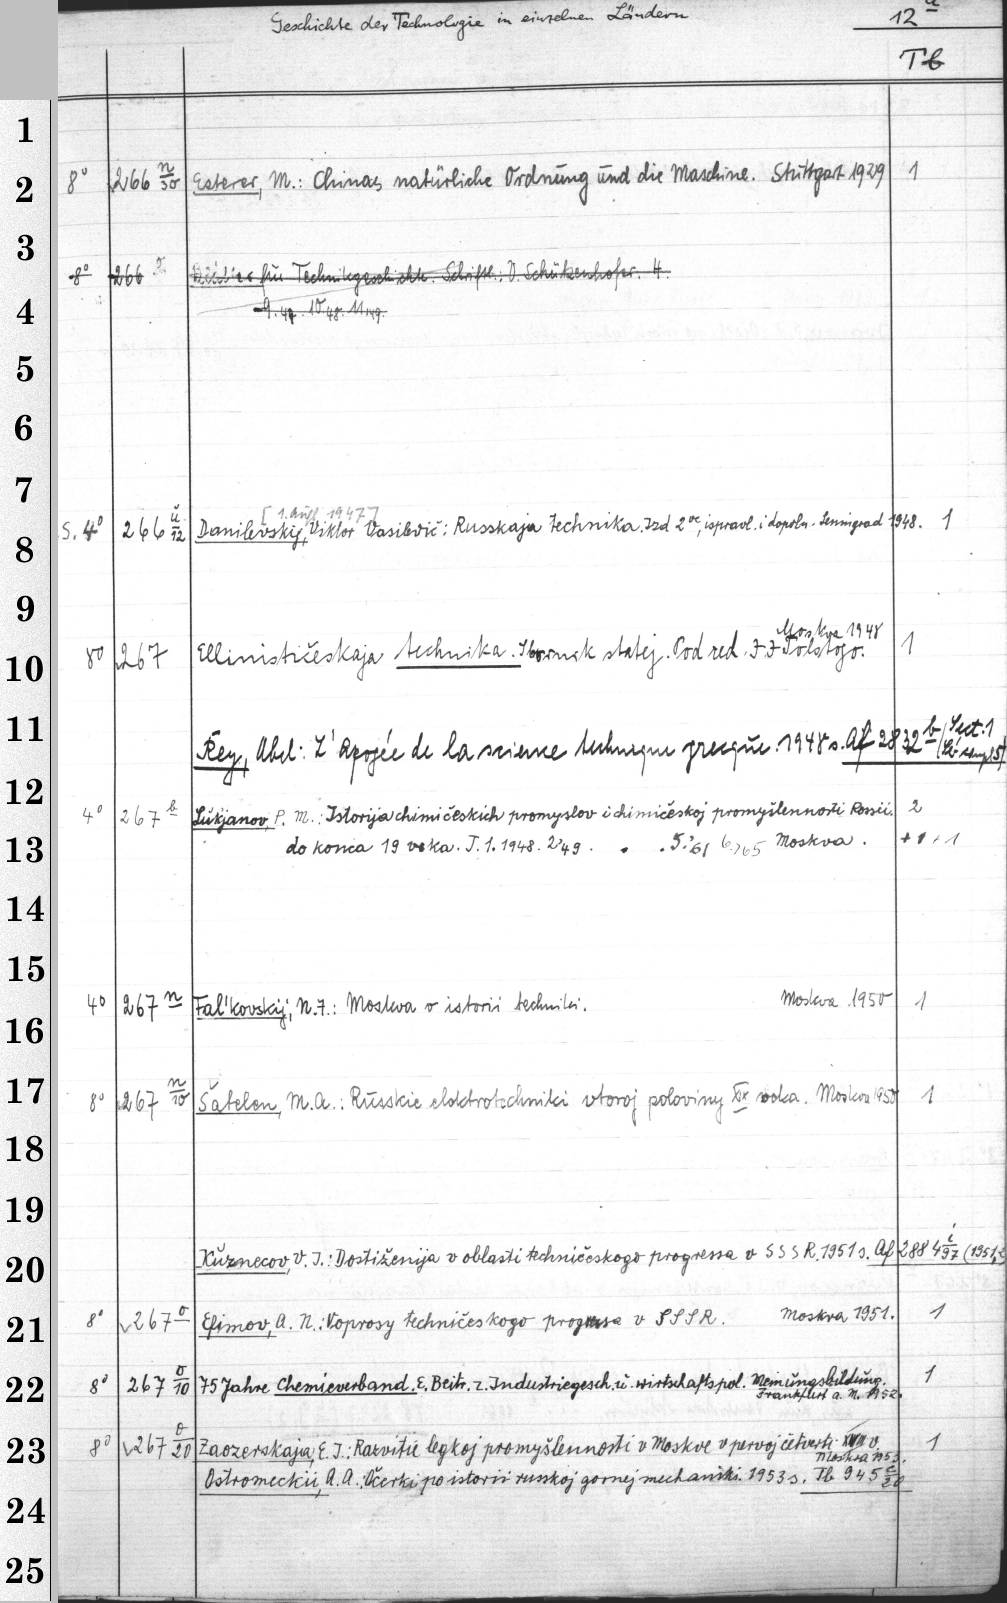 Geschichte der Technologie in einzelnen Ländern 12 u
Tb
1
2 8° 266 n/50 Esterer, M.: Chinas natürliche Ordnung und die Maschine. Stuttgart 1929 1
3
8° 266 Blätter für Technikgeschichte. Schriftl.: V. Schützenhofer. H.
4 9.47. 10.48. 11.49.
5
6
7
[1. Aufl. 1947]
8 S. 4° 266 u/12 Danilevskij, Viktor Vasilevič: Russkaja technika. Izd 2oe, ispravl. i dopoln. Leningrad 1948. 1
9
Moskva 1948
10 8° 267 Ellinističeskaja technika. Sbornik statej. Pod red. I. I. Tolstogo. 1
11 Rey, Abel: L'apogée de la science technique grecque. 1948 s. Af 2832 b (Sect. 1
12 4° 267 b Lukjanov, P. M.: Istorija chimičeskich promyslov i chimičeskoj promyšlennosti Rossii. 2
13 do konca 19 veka. T. 1. 1948. 2.'49. 5.'61 6.'65 Moskva. + 1 + 1
14
15
16 4° 267 n Fal'kovskij, N. I.: Moskva v istorii techniki. Moskva 1950 1
17 8° 267 n/10 Šatelen, M. A.: Russkie elektrotechniki vtoroj poloviny XIX veka. Moskva 1950 1
18
19
20 Kuznecov, V. I.: Dostiženija v oblasti techničeskogo progressa v SSSR. 1951 s. Af 2884 i/97 (1951,
21 8° 267 o Efimov, A. N.: Voprosy techničeskogo progressa v SSSR. Moskva 1951. 1
22 8° 267 o/10 75 Jahre Chemieverband. E. Beitr. z. Industriegesch. u. wirtschaftspol. Meinungsbildung. 1
Frankfurt a. M. 1952.
23 8° 267 o/20 Zaozerskaja, E. I.: Razvitie legkoj promyšlennosti v Moskve v pervoj četverti XVIII v. 1
Moskva 1953.
Ostromeckii, A. A.: Očerki po istorii russkoj gornej mechaniki. 1953 s. Tb 945 c/20
24
25